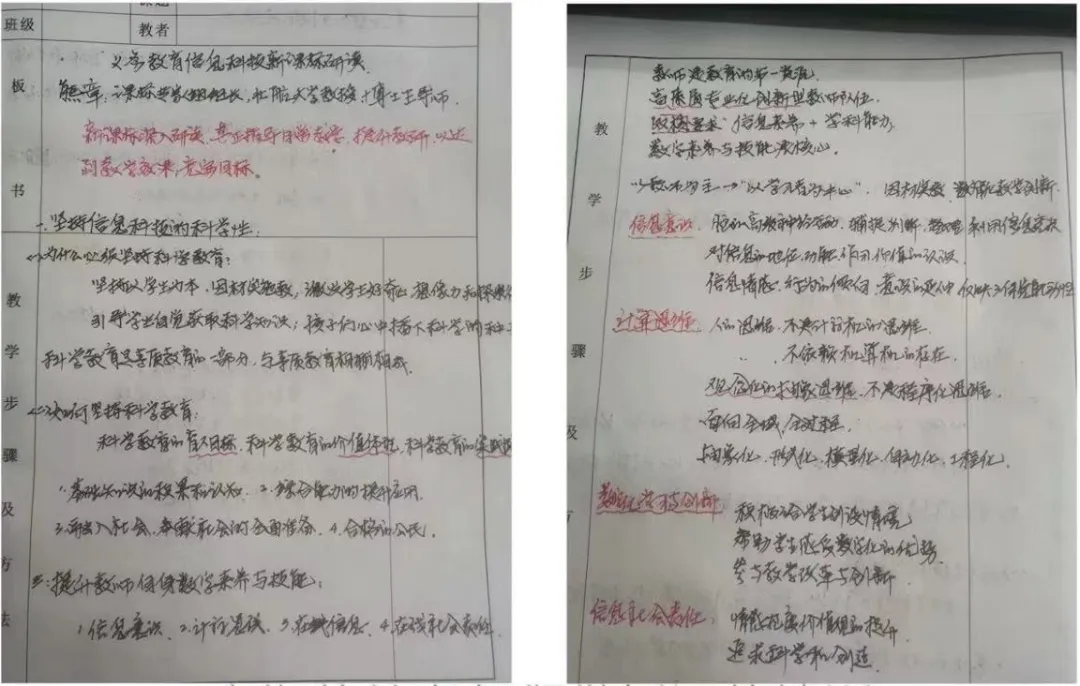 课题
班级
教者
板
书
义务教育信息科技新课标研读
熊璋:课标专家组组长,北航大学教授,博士生导师.
新课标深入研读,真正指导日常教学,提升教研,以达
到教学效果,育人目标.
一.坚持信息科技的科学性:
教
学
步
骤
及
方
法
<1>为什么必须坚持科学教育:
坚持以学生为本,因材施教,激发学生好奇心想像力和探求欲
引导学生自觉获取科学知识;孩子们心中播下科学的种子
科学教育是素质教育的一部分,与素质教育相辅相成.
<2>如何坚持科学教育:
科学教育的育人目标,科学教育的价值体现,科学教育的实践
1.基础知识的积累和认知. 2.综合能力的提升应用.
3.融入社会,奉献社会的全面准备. 4.合格的公民.
二:提升教师自身数字素养与技能:
1.信息意识. 2.计算思维. 3.在线信息. 4.在线社会责任.
教
学
步
骤
及
方
教师是教育的第一资源.
高质量专业化创新型教师队伍.
信息素养+学科能力
数字素养与技能是核心.
以教师为主→“以学习者为中心”. 因材施教,教学创新.
信息意识. 脑的高级神经活动,捕捉判断,整理,利用信息
对信息的地位,功能,作用,价值的认识.
信息情感,行为的倾向,
计算思维. 人的思维,不是计算机的思维.
不依赖和计算机的存在.
观念化的抽象思维,不是程序化思维.
面向全域,全过程.
抽象化,形式化,模型化,自动化,工程化.
数字化学习与创新 积极结合学生创设情境
帮助学生感受数字化的优势
参与教学改革与创新
信息社会责任: 情感态度价值观的提升.
追求科学和创造.